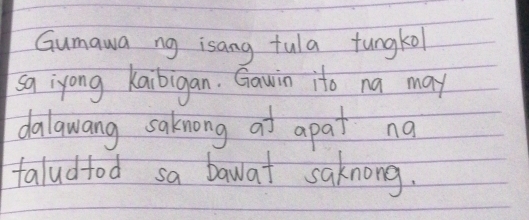 Gumawa ng isang tula tungkol
sa iyong kaibigan. Gawin ito na may
dalawang saknong at apat na
taludtod sa bawat saknong.